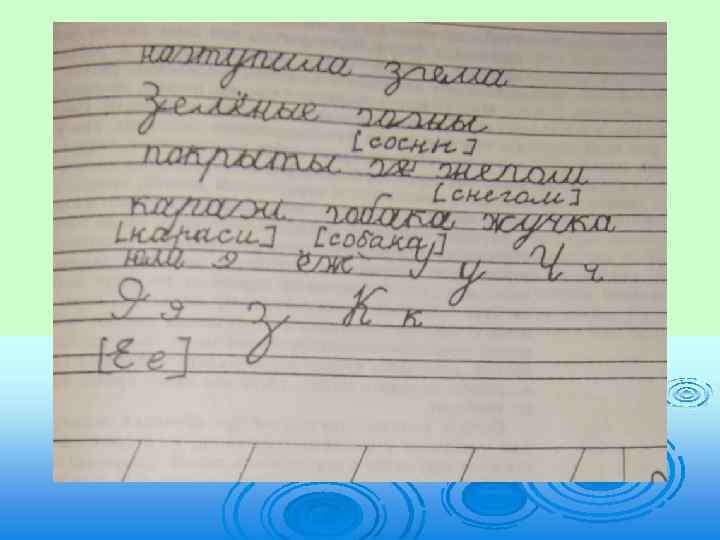 наэтупила згема
Зелёные эоэны
[соснн]
покрыты эе энегом
[снегом]
караэи эобака жучка
[караси] [собака]
юла я ёж У у Ч ч
Я я з К к
[Е е]